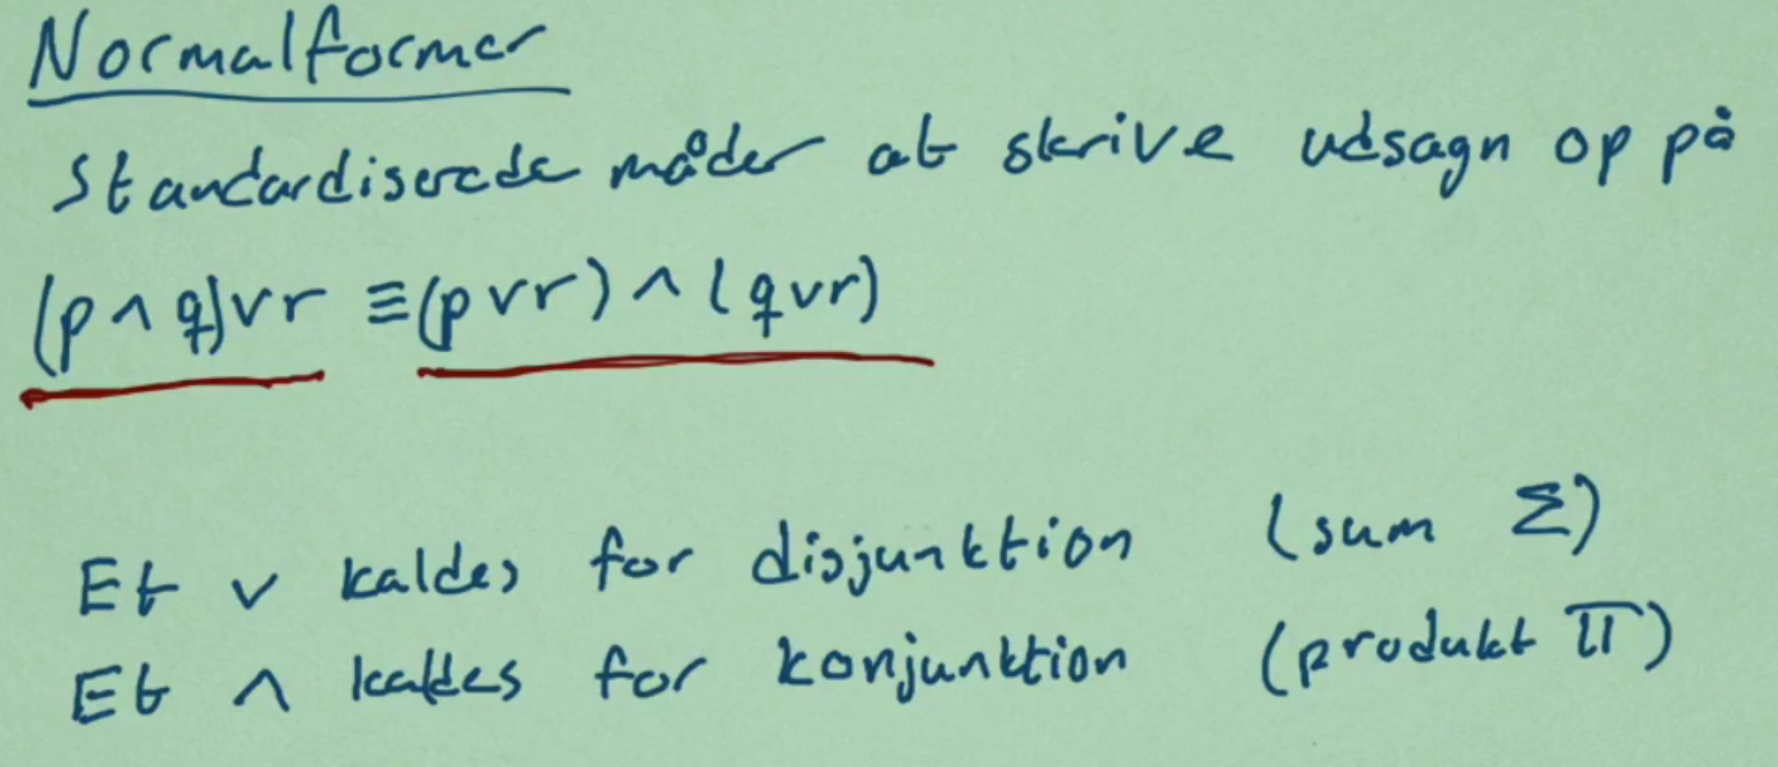 Normalformer
Standardiserede måder at skrive udsagn op på
(p ∧ q) ∨ r ≡ (p ∨ r) ∧ (q ∨ r)
Et ∨ kaldes for disjunktion (sum Σ)
Et ∧ kaldes for konjunktion (produkt Π)